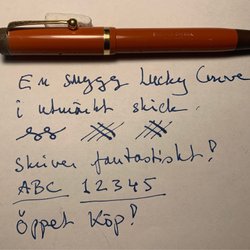 En snygg Lucky Curve
i utmärkt skick.
Skriver fantastiskt!
ABC 12345
Öppet Köp!